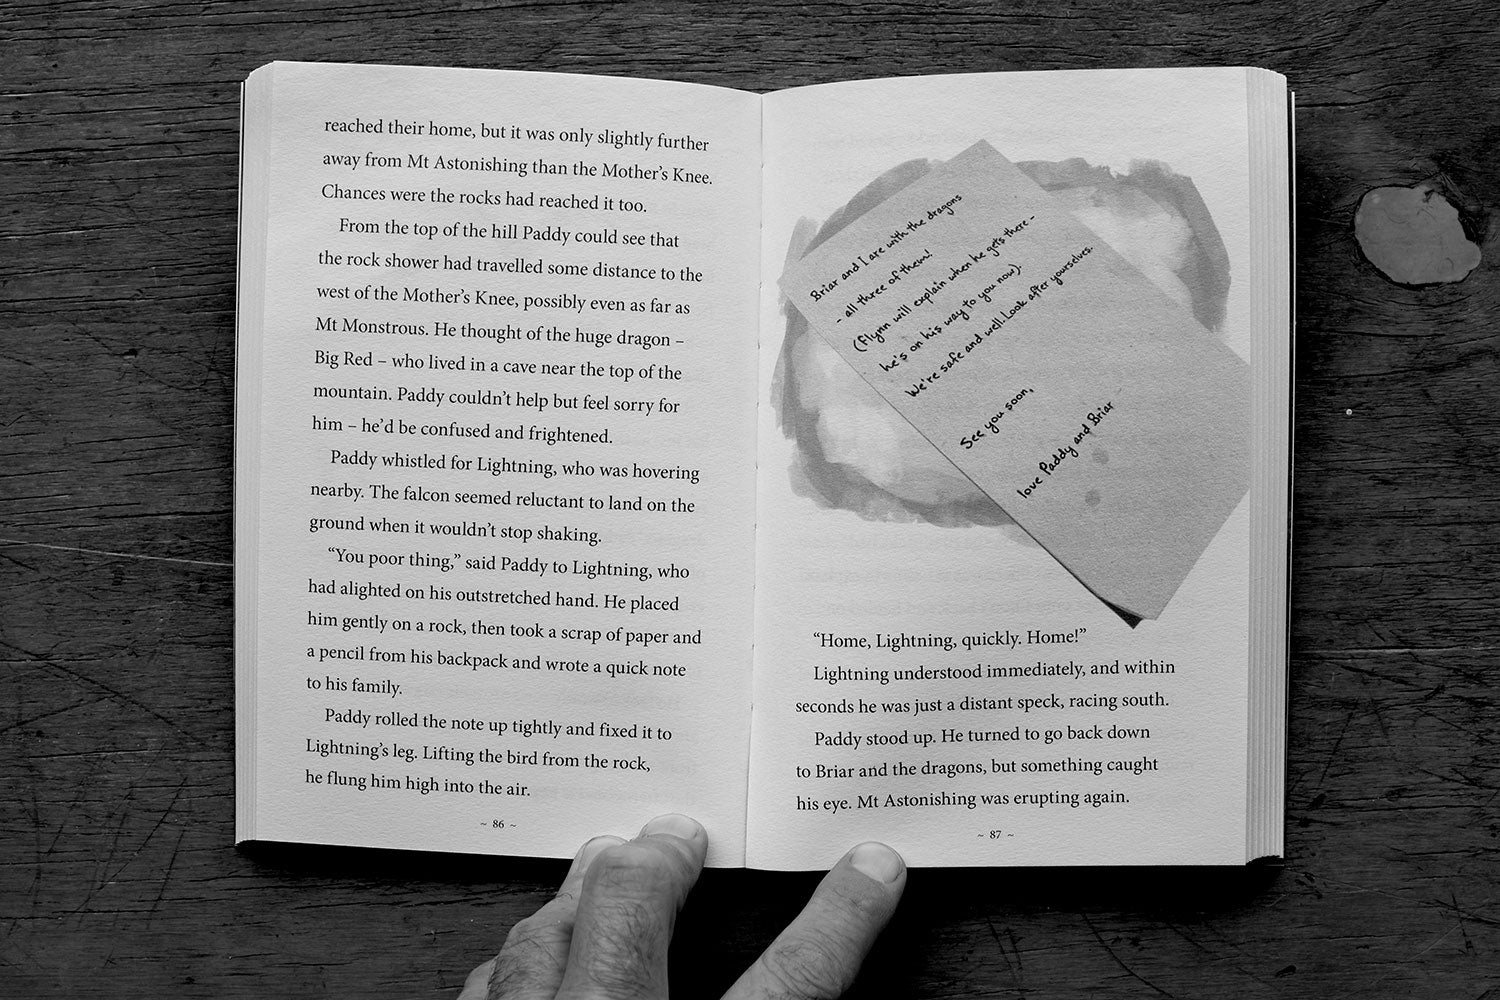 reached their home, but it was only slightly further
away from Mt Astonishing than the Mother’s Knee.
Chances were the rocks had reached it too.
From the top of the hill Paddy could see that
the rock shower had travelled some distance to the
west of the Mother’s Knee, possibly even as far as
Mt Monstrous. He thought of the huge dragon –
Big Red – who lived in a cave near the top of the
mountain. Paddy couldn’t help but feel sorry for
him – he’d be confused and frightened.
Paddy whistled for Lightning, who was hovering
nearby. The falcon seemed reluctant to land on the
ground when it wouldn’t stop shaking.
“You poor thing,” said Paddy to Lightning, who
had alighted on his outstretched hand. He placed
him gently on a rock, then took a scrap of paper and
a pencil from his backpack and wrote a quick note
to his family.
Paddy rolled the note up tightly and fixed it to
Lightning’s leg. Lifting the bird from the rock,
he flung him high into the air.
~ 86 ~
Briar and I are with the dragons
- all three of them!
(Flynn will explain when he gets there -
he's on his way to you now).
We're safe and well. Look after yourselves.
See you soon,
love Paddy and Briar
“Home, Lightning, quickly. Home!”
Lightning understood immediately, and within
seconds he was just a distant speck, racing south.
Paddy stood up. He turned to go back down
to Briar and the dragons, but something caught
his eye. Mt Astonishing was erupting again.
~ 87 ~